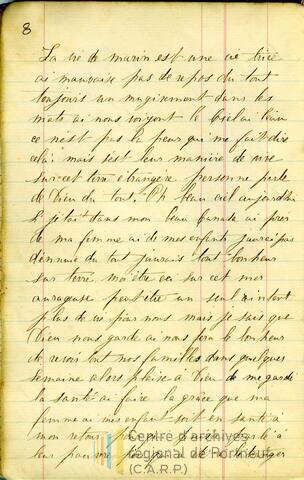 8
La vie de marin est une vie tricé
ai mauvaise pas de repos du tout
toujours un mugisement dans les
mats ai nous voyont le ciel ai l'eau
ce n'est pas la peur qui me fait dire
cela; mais s'est leur manière de vivre
sur cet terre étrangère personne parle
de Dieu du tout. Oh beau ciel aujourdhui
si j'etait dans mon beau Canada ai près
de ma femme ai de mes enfants j'aurai pas
d'ennuie du tout j'aurais tout bonheur
sur terre, moi être ici sur cet mer
auragause peut être un seul instant
plus de vie pour nous mais je sais que
Dieu nous garde ai nous fera le bonheur
de revoir tout nos familles dans quelques
semaine alors plaise a Dieu de me gardé
la santé ai faire la grâce que ma
femme ai mes enfant soit en santé a
mon retour
leur pauvre
Centre d'archives
régional de Portneuf
(C.A.R.P.)